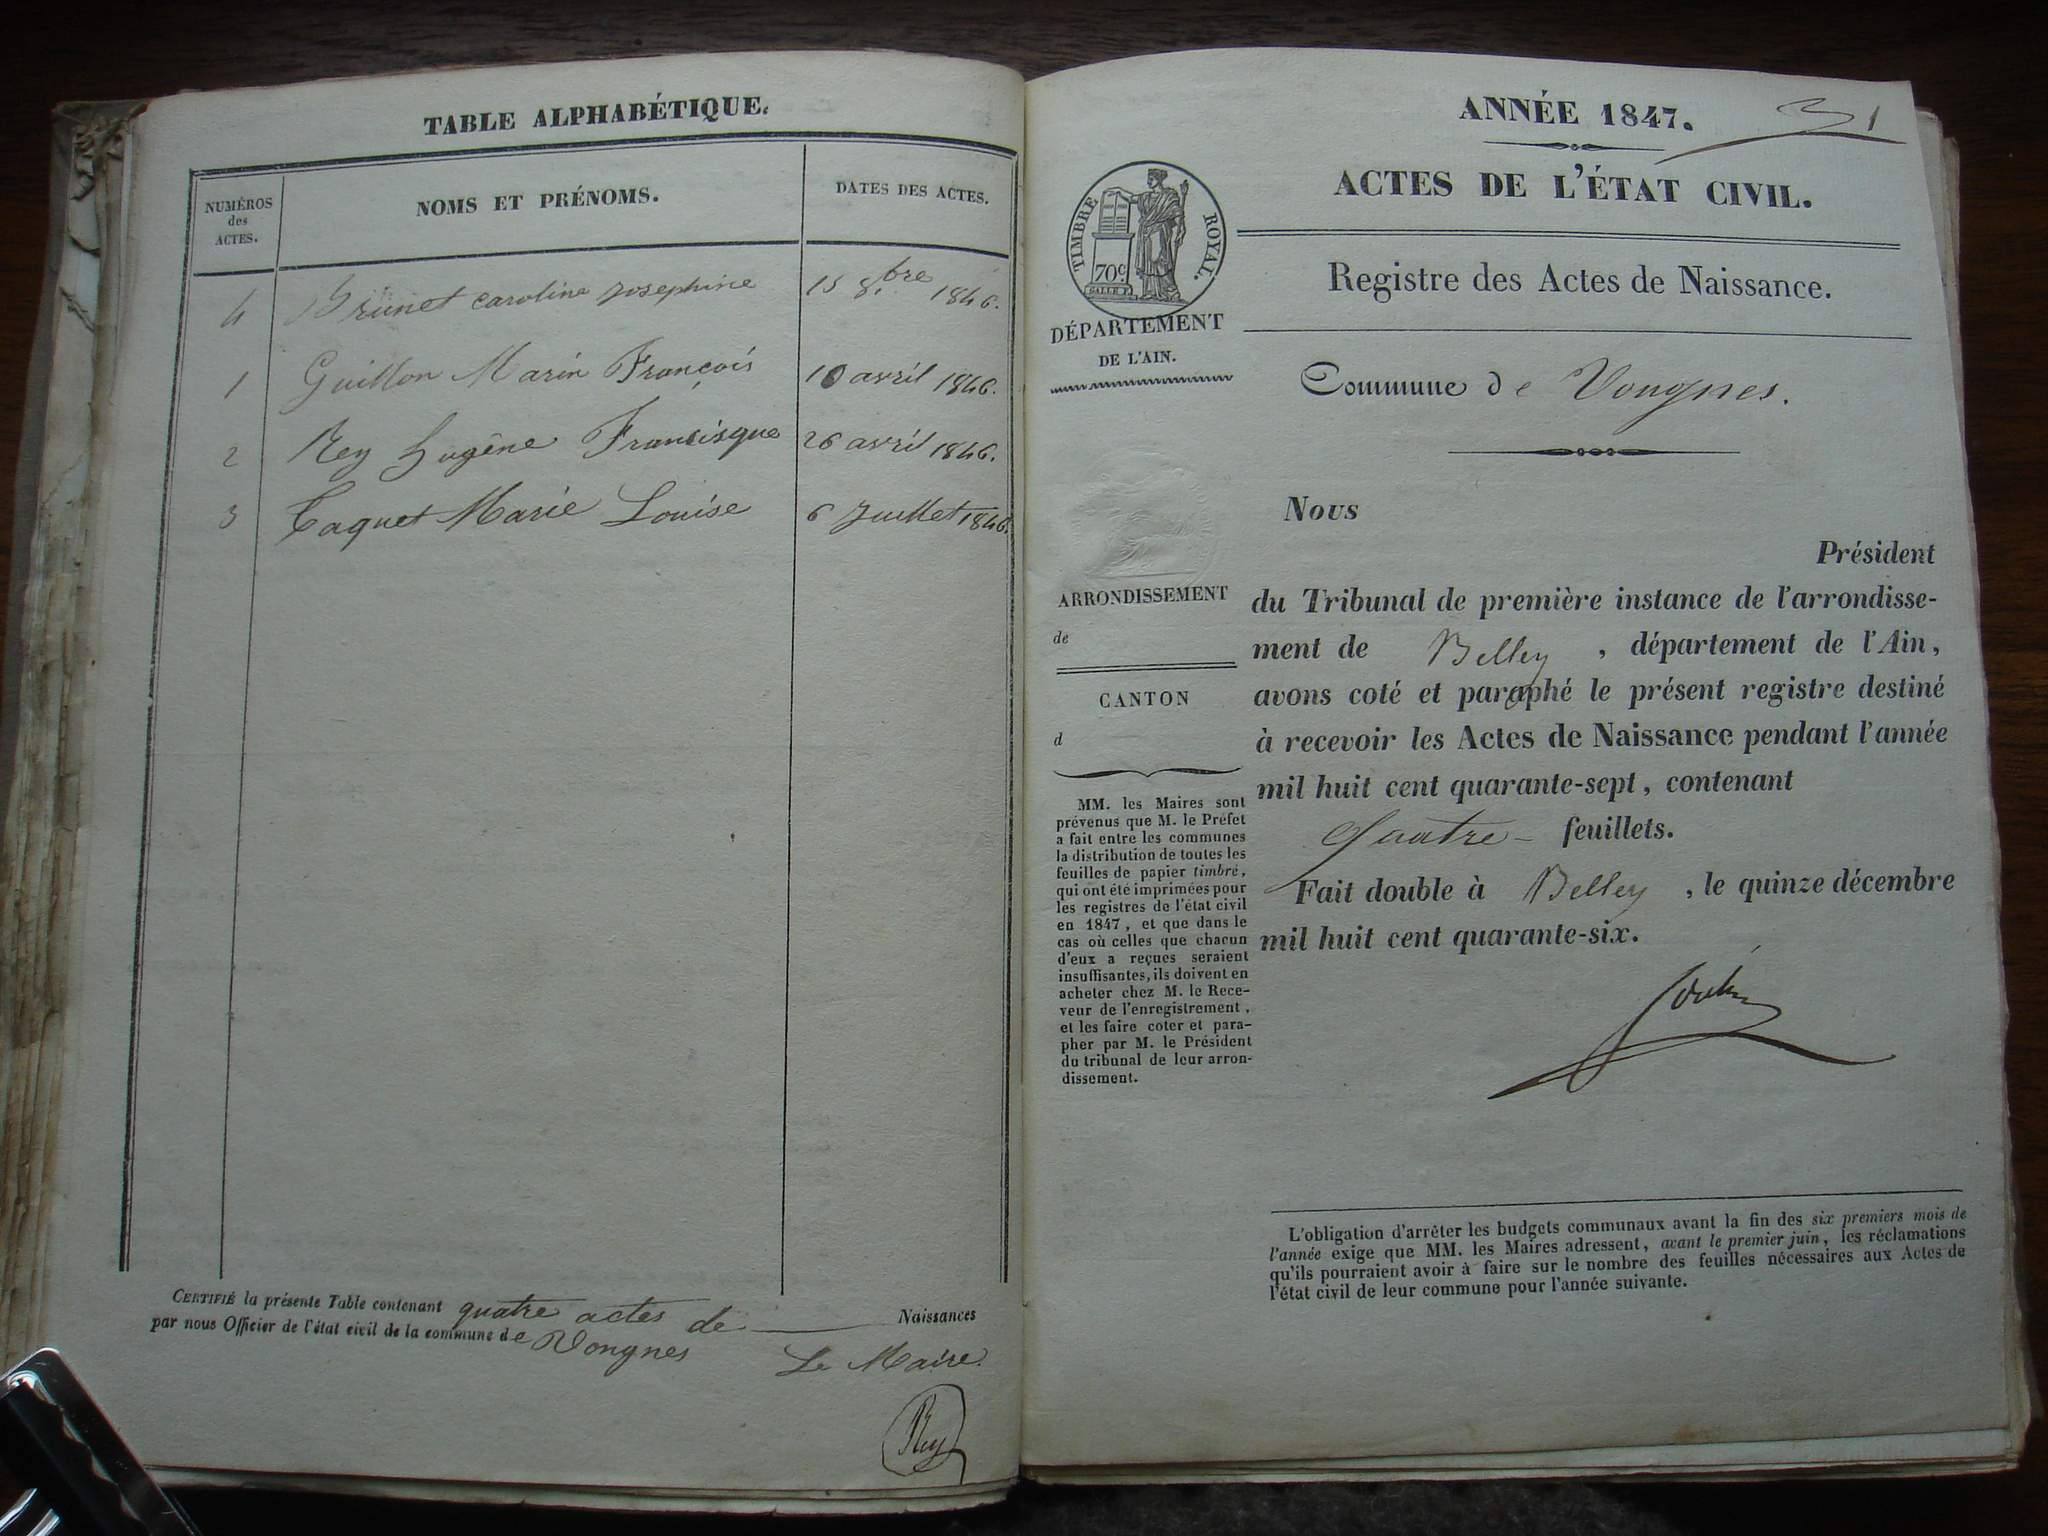 TABLE ALPHABÉTIQUE.
NUMÉROS
des
ACTES.
NOMS ET PRÉNOMS.
DATES DES ACTES.
4 Brunet caroline Josephine 15 8.bre 1846.
1 Guillon Marin François 10 avril 1846.
2 Rey Eugène Francisque 26 avril 1846.
3 Caquet Marie Louise 6 Juillet 1846.
CERTIFIÉ la présente Table contenant quatre actes de Naissances
par nous Officier de l'état civil de la commune de Vongnes
Le Maire.
Rey
ANNÉE 1847.
1
ACTES DE L'ÉTAT CIVIL.
TIMBRE ROYAL.
70c.
Registre des Actes de Naissance.
DÉPARTEMENT
DE L'AIN.
Commune de Vongnes.
Nous
Président
du Tribunal de première instance de l'arrondisse-
ment de Belley, département de l'Ain,
avons coté et paraphé le présent registre destiné
à recevoir les Actes de Naissance pendant l'année
mil huit cent quarante-sept, contenant
Quatre - feuillets.
Fait double à Belley, le quinze décembre
mil huit cent quarante-six.
ARRONDISSEMENT
de
CANTON
d
MM. les Maires sont
prévenus que M. le Préfet
a fait entre les communes
la distribution de toutes les
feuilles de papier timbré,
qui ont été imprimées pour
les registres de l'état civil
en 1847, et que dans le
cas où celles que chacun
d'eux a reçues seraient
insuffisantes, ils doivent en
acheter chez M. le Rece-
veur de l'enregistrement,
et les faire coter et para-
pher par M. le Président
du tribunal de leur arron-
dissement.
L'obligation d'arrêter les budgets communaux avant la fin des six premiers mois de
l'année exige que MM. les Maires adressent, avant le premier juin, les réclamations
qu'ils pourraient avoir à faire sur le nombre des feuilles nécessaires aux Actes de
l'état civil de leur commune pour l'année suivante.